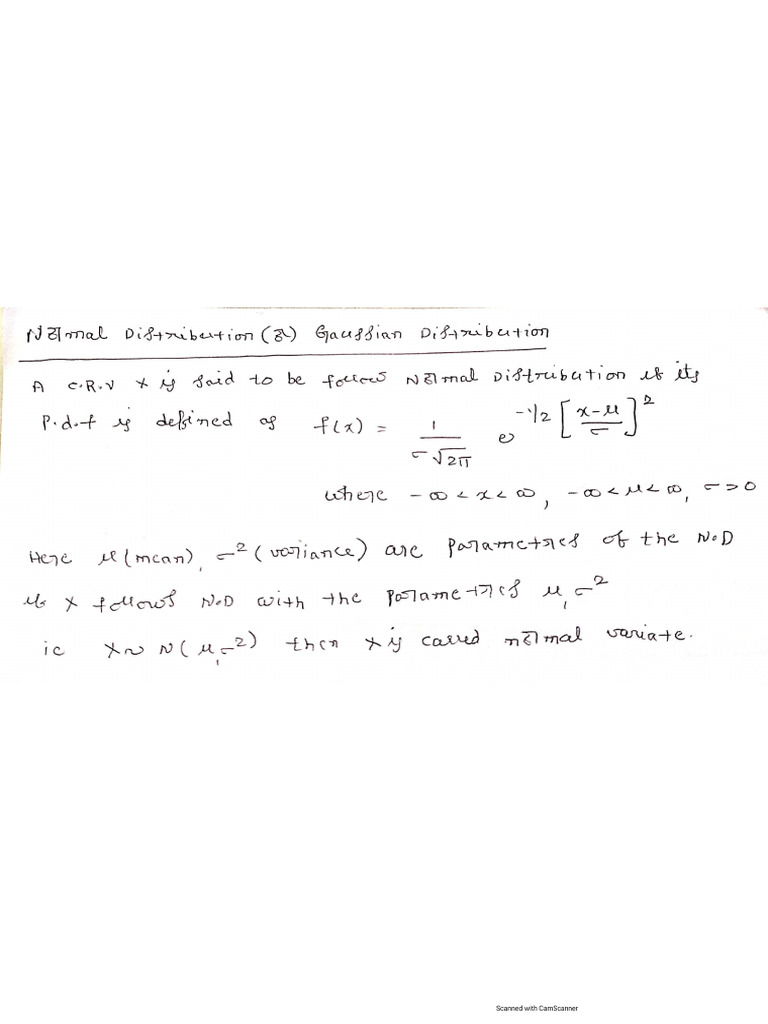 Normal Distribution (or) Gaussian Distribution
A C.R.V X is said to be follow Normal Distribution if its
P.d.f is defined as f(x) = 1/(σ√2π) e^(-1/2 [(x-μ)/σ]^2)
where -∞ < x < ∞, -∞ < μ < ∞, σ > 0
Here μ (mean), σ² (variance) are parametres of the N.D
If X follows N.D with the parametres μ, σ²
ie X ~ N(μ, σ²) then X is called normal variate.
Scanned with CamScanner